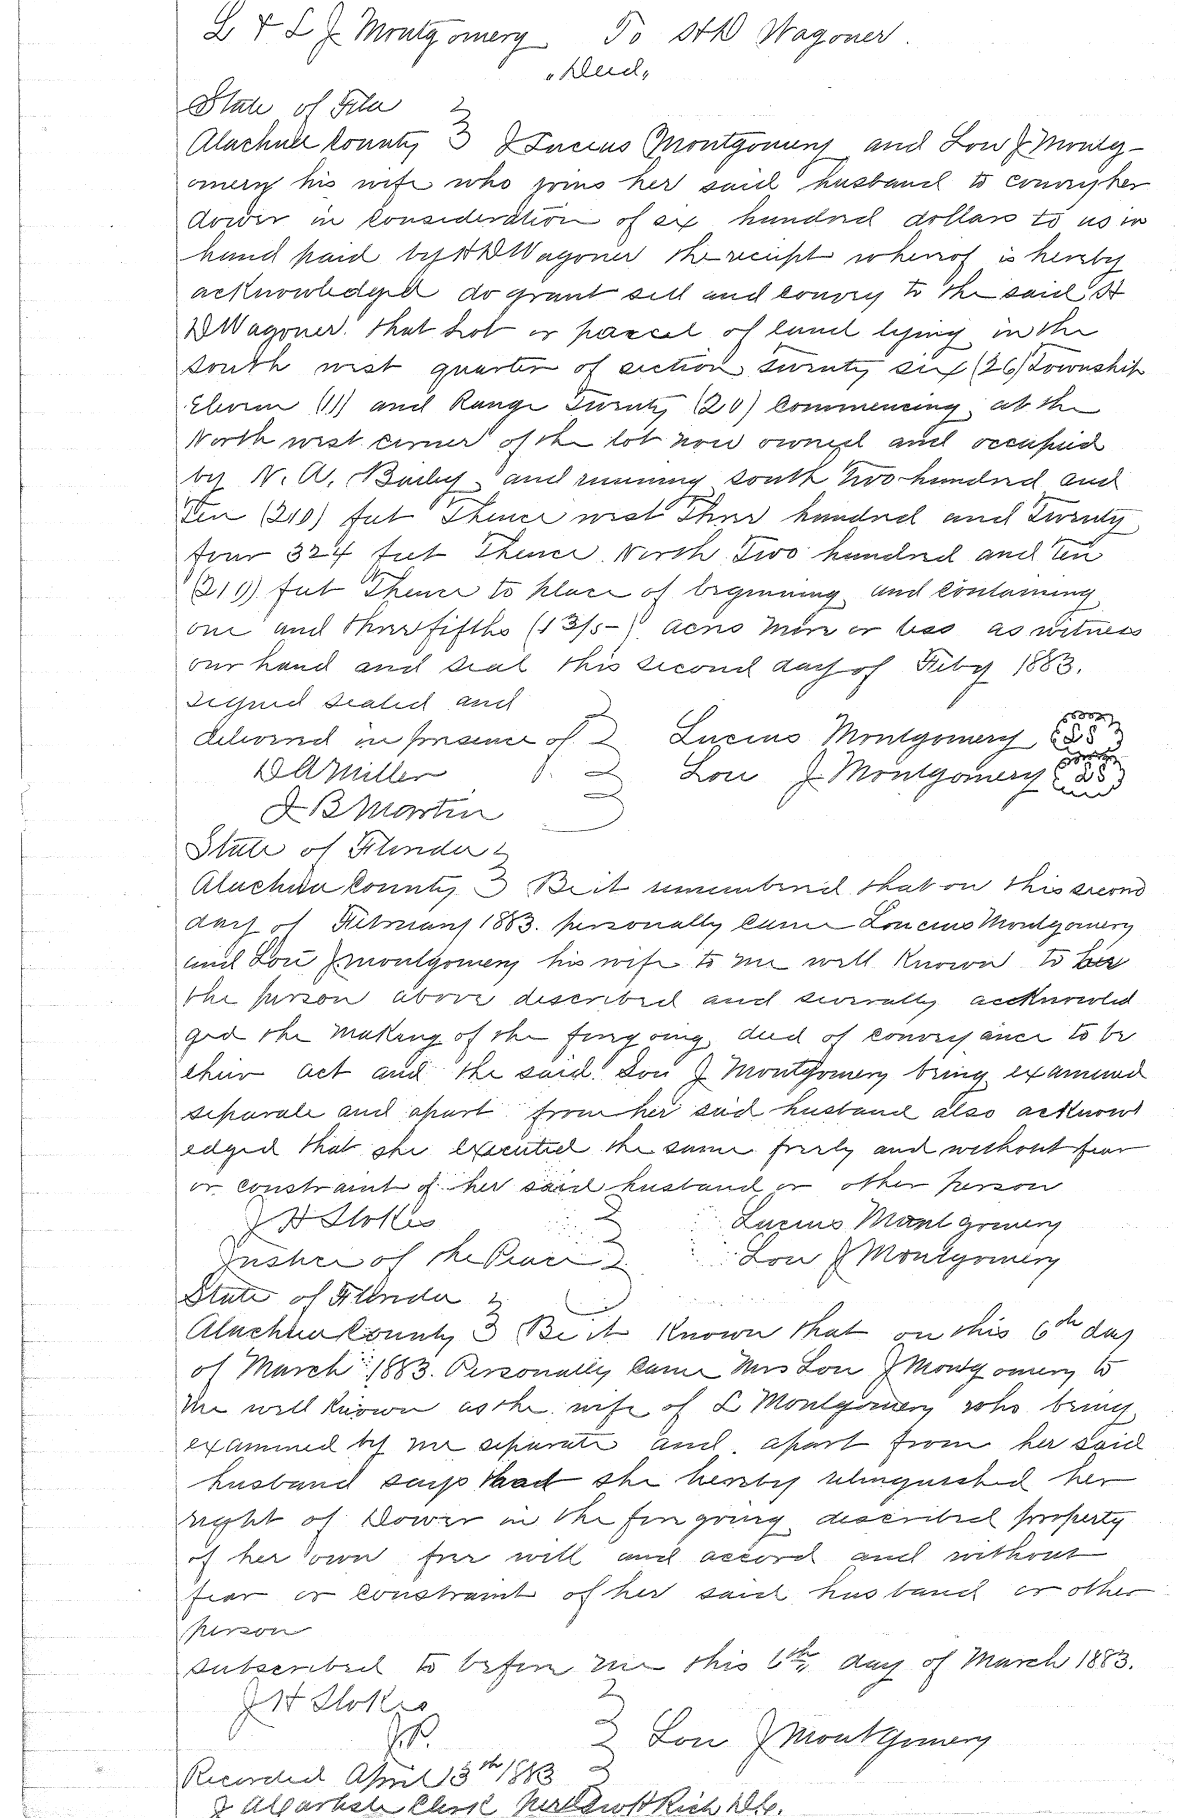 L & L J Montgomery To H D Wagoner.
"Deed"
State of Fla
Alachua County I Lucius Montgomery and Lou J Montg-
omery his wife who joins her said husband to convey her
dower in consideration of six hundred dollars to us in
hand paid by H D Wagoner the receipt whereof is hereby
acknowledged do grant sell and convey to the said H
D Wagoner that Lot or parcel of land lying in the
South west quarter of section Twenty six (26) Township
Eleven (11) and Range Twenty (20) Commencing at the
North west corner of the lot now owned and occupied
by N. A. Bailey and running south Two hundred and
Ten (210) feet Thence west Three hundred and Twenty
four 324 feet Thence North Two hundred and Ten
(210) feet Thence to place of beginning and Containing
one and three fifths (1 3/5-) acres more or less as witness
our hand and seal this second day of Feby 1883.
signed sealed and
delivered in presence of Lucius Montgomery
D A Miller Lou J Montgomery
J B Martin
State of Florida
Alachua County Be it remembered that on this second
day of February 1883. personally came Loucius Montgomery
and Lou J Montgomery his wife to me well Known to be
the person above described and severally acknowled
ged the making of the forgoing deed of conveyance to be
their act and the said Lou J Montgomery being examined
separate and apart from her said husband also acknowl
edged that she executed the same freely and without fear
or constraint of her said husband or other person
J H Stokes Lucius Montgomery
Justice of the Peace Lou J Montgomery
State of Florida
Alachua County Be it Known that on this 6th day
of March 1883. Personally came Mrs Lou J Montgomery to
me well Known as the wife of L Montgomery who being
examined by me separate and apart from her said
husband says that she hereby relinquished her
right of Dower in the forgoing described property
of her own free will and accord and without
fear or constraint of her said husband or other
person
subscribed to before me this 6th day of March 1883.
J H Stokes
J.P. Lou J Montgomery
Recorded April 13th 1883
J A Carlisle Clerk Per Rich D.C.